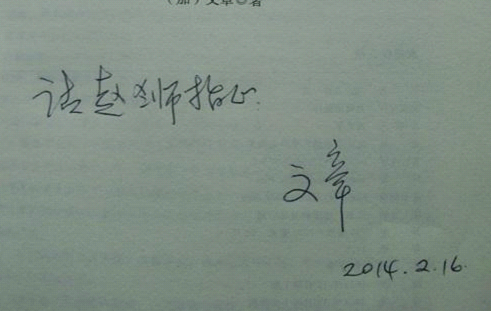 （加）文章◎著
请赵老师指正.
文章
2014.2.16.